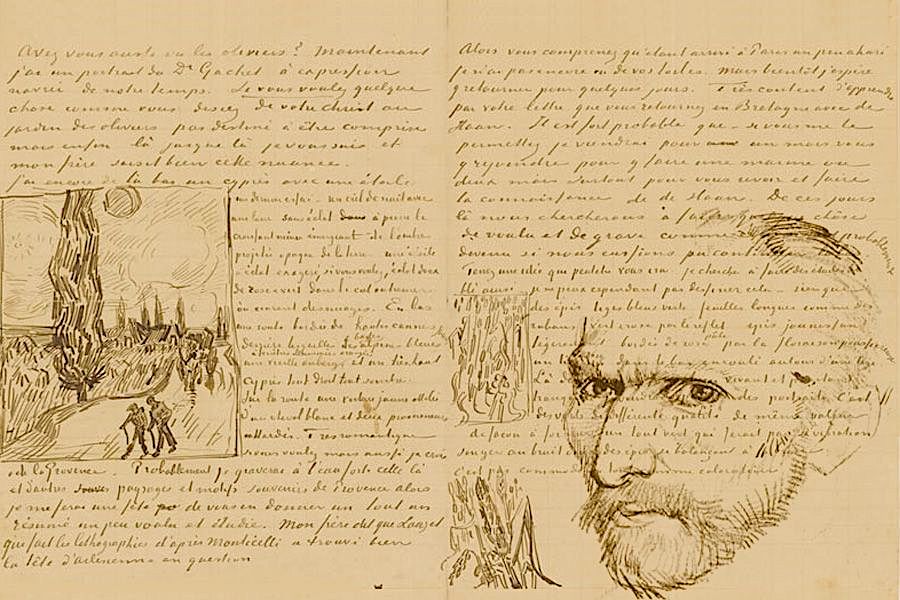 Avez vous aussi vu les oliviers? Maintenant
j'ai un portrait du Dr Gachet à expression
navrée de notre temps. Si vous voulez quelque
chose comme vous disiez de votre Christ au
jardin des oliviers pas destiné à être compris
mais enfin là jusque là je vous suis et
mon frère saisit bien cette nuance.
J'ai encore de là bas un cyprès avec une étoile
un dernier essai - un ciel de nuit avec
une lune sans éclat à peine le
croissant mince émergeant de l'ombre
projetée opaque de la terre - une étoile
à éclat exagéré si vous voulez, éclat doux
de rose et vert dans le ciel outremer
où courent des nuages. En bas
une route bordée de hautes cannes
jaunes derrière lesquelles les basses Alpines bleues
une vieille auberge à fenêtres illuminées orangée et un très haut
cyprès tout droit tout sombre.
Sur la route une voiture jaune attelée
d'un cheval blanc et deux promeneurs
attardés. Très romantique
si vous voulez mais aussi je crois
de la Provence. Probablement je graverai à l'eau forte celle là
et d'autres paysages et motifs souvenirs de Provence alors
je me ferai une fête de vous en donner un tout un
résumé un peu voulu et étudié. Mon frère dit que Lauzet
qui fait les lithographies d'après Monticelli a trouvé bien
la tête d'arlésienne en question
Alors vous comprenez qu'étant arrivé à Paris un peu ahuri
je n'ai pas encore vu de vos toiles. Mais bientôt j'espère
y retourner pour quelques jours. Très content d'apprendre
par votre lettre que vous retournez en Bretagne avec de
Haan. Il est fort probable que - si vous me le
permettez je viendrai pour un mois vous
y rejoindre pour y faire une marine ou
deux mais surtout pour vous revoir et faire
la connaissance de de Haan. De ces jours
là nous chercherons à faire quelque chose
de voulu et de grave comme probablement
devenu si nous eussions pu continuer
Tenez une idée qui peut-être vous ira je cherche à faire des études
de blé ainsi je ne peux cependant pas dessiner cela - rien que
des épis tiges bleues vertes feuilles longues comme des
rubans vert et rose par le reflet épis jaunes
légèrement bordés de rose pâle par la floraison
dans le bas enroulé autour d'une tige
Là vivant et
des portraits. C'est
des verts de différente qualité de même valeur
de façon à former un tout vert qui ferait par sa vibration
songer au bruit des épis se balançant à la
c'est pas commode comme coloration